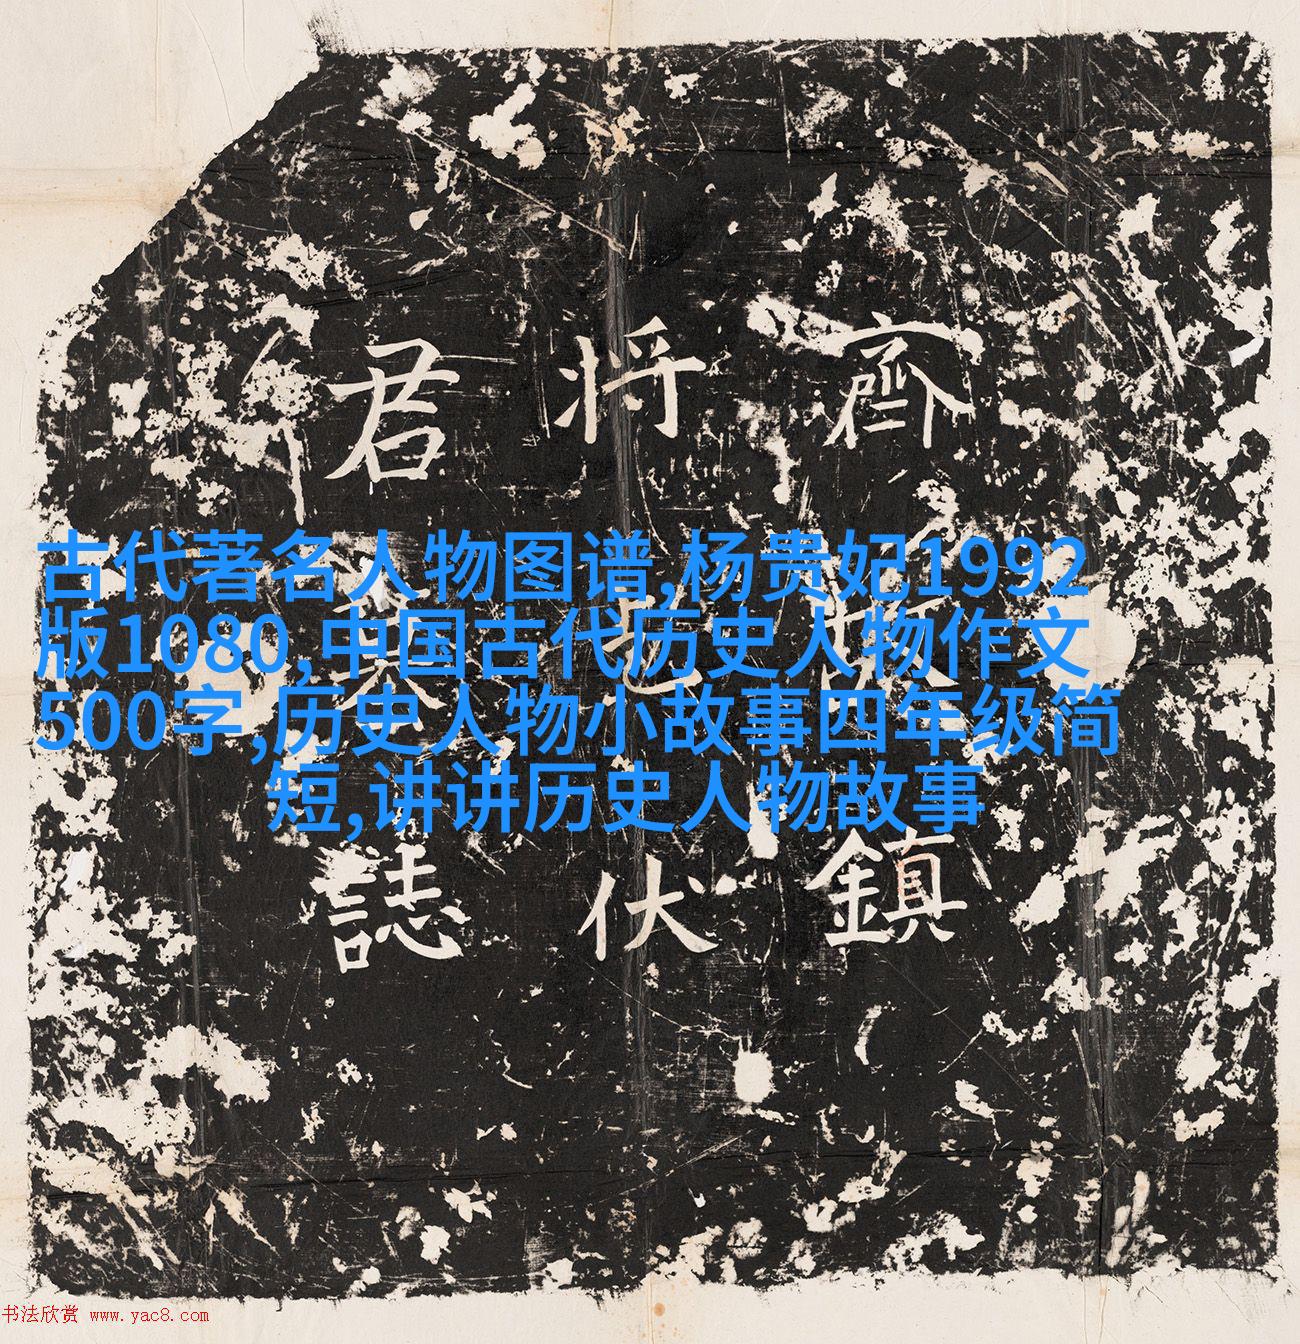 齊故鎮
将乞伏
君墓誌
古代著名人物图谱,杨贵妃1992
版1080,中国古代历史人物作文
500字,历史人物小故事四年级简
短,讲讲历史人物故事
书法欣赏 www.yac8.com